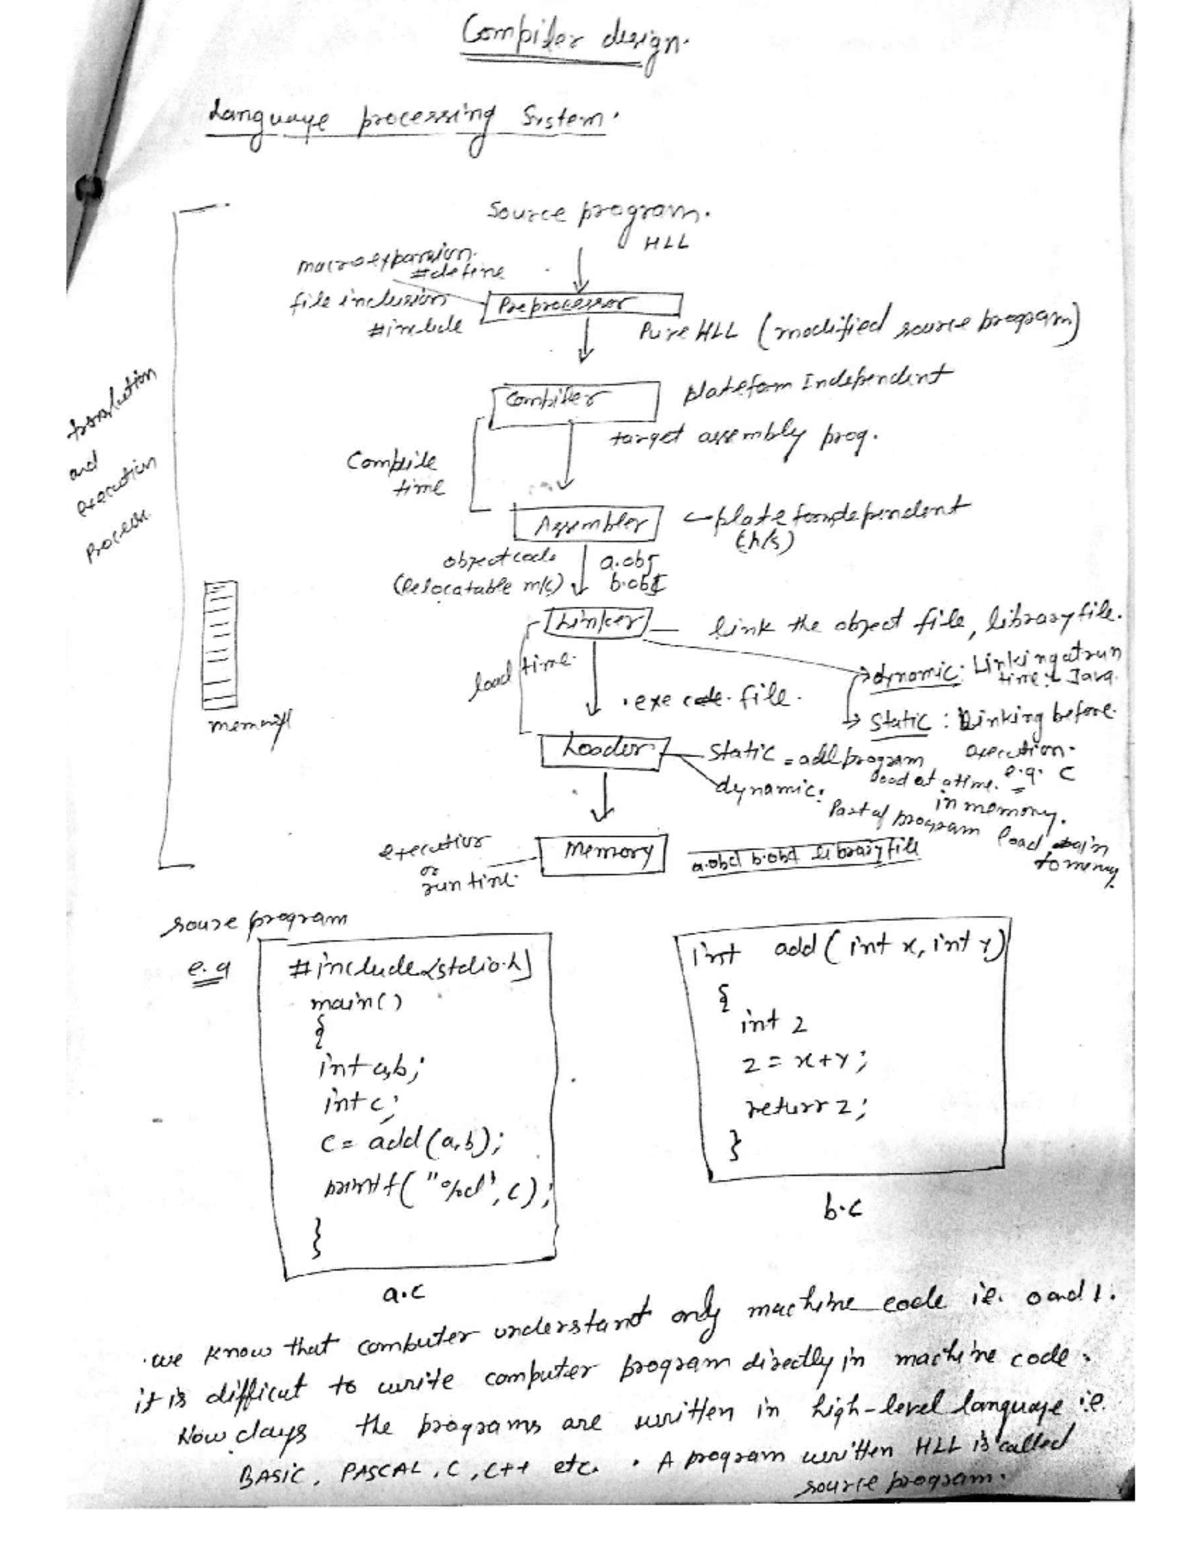 Compiler design.
Language processing System.
Source program.
HLL
macro expansion.
#define
file inclusion
#include
Preprocessor
Pure HLL (modified source program)
Compiler
plateform Independent
target assembly prog.
Compile
time
translation
and
execution
Process.
Assembler
plateform dependent
(h/s)
object code
(Relocatable m/c)
a.obj
b.obj
Linker
link the object file, library file.
load time.
dynamic: Linking at run
time: Java.
.exe code file.
Static: Linking before
execution.
e.g. C
memory
Loader
Static = add program
load at a time.
in memory.
dynamic:
Part of program load
to memory
execution
or
run time.
Memory
a.obj b.obj library file
soure program
e.g
#include<stdio.h]
main()
{
int a,b;
int c;
c = add(a,b);
printf("%d", c);
}
a.c
int add(int x, int y)
{
int z
z = x+y;
return z;
}
b.c
.we know that computer understant only machine code ie. 0 and 1.
it is difficut to write computer program directly in machine code.
Now days the programs are written in high-level language ie.
BASIC, PASCAL, C, C++ etc.. A program written HLL is called
source program.